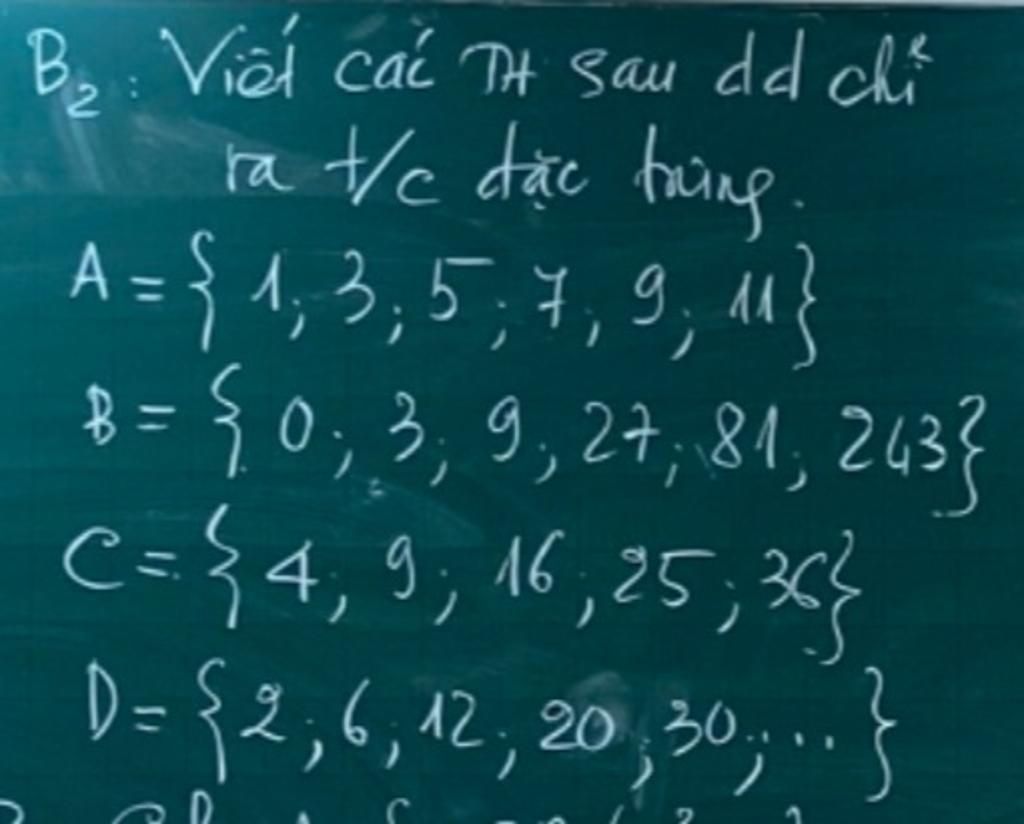 B2: Viết các TH sau dd chỉ
ra t/c đặc trưng.
A = { 1; 3; 5; 7; 9; 11}
B = { 0; 3; 9; 27; 81; 243}
C = { 4; 9; 16; 25; 36}
D = { 2; 6; 12; 20; 30; ... }